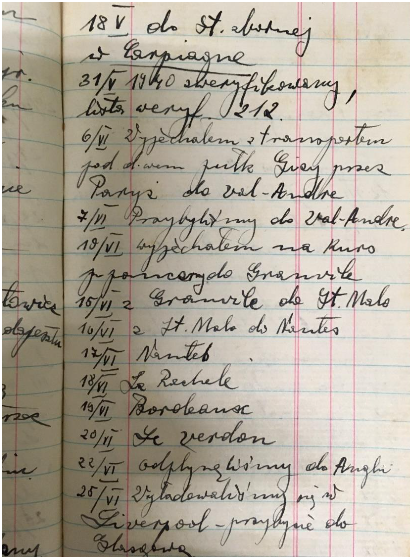 18 V do St. zbornej
w Carpiagne
31/V 1940 zweryfikowany,
lista weryf. 212.
6/VI Wyjechałem z transportem
pod d-wem pułk Gizy przez
Paryż do Val-Andre
7/VI Przybyliśmy do Val-Andre.
10/VI wyjechałem na kurs
p. pancer, do Granvile
15/VI z Granvile do St. Malo
16/VI z St. Malo do Nantes
17/VI Nantes
18/VI La Rochele
19/VI Bordeaux
20/VI Le verdon
22/VI odpłynęliśmy do Anglii
25/VI Wyładowaliśmy się w
Liverpool - przybycie do
Glasgowa